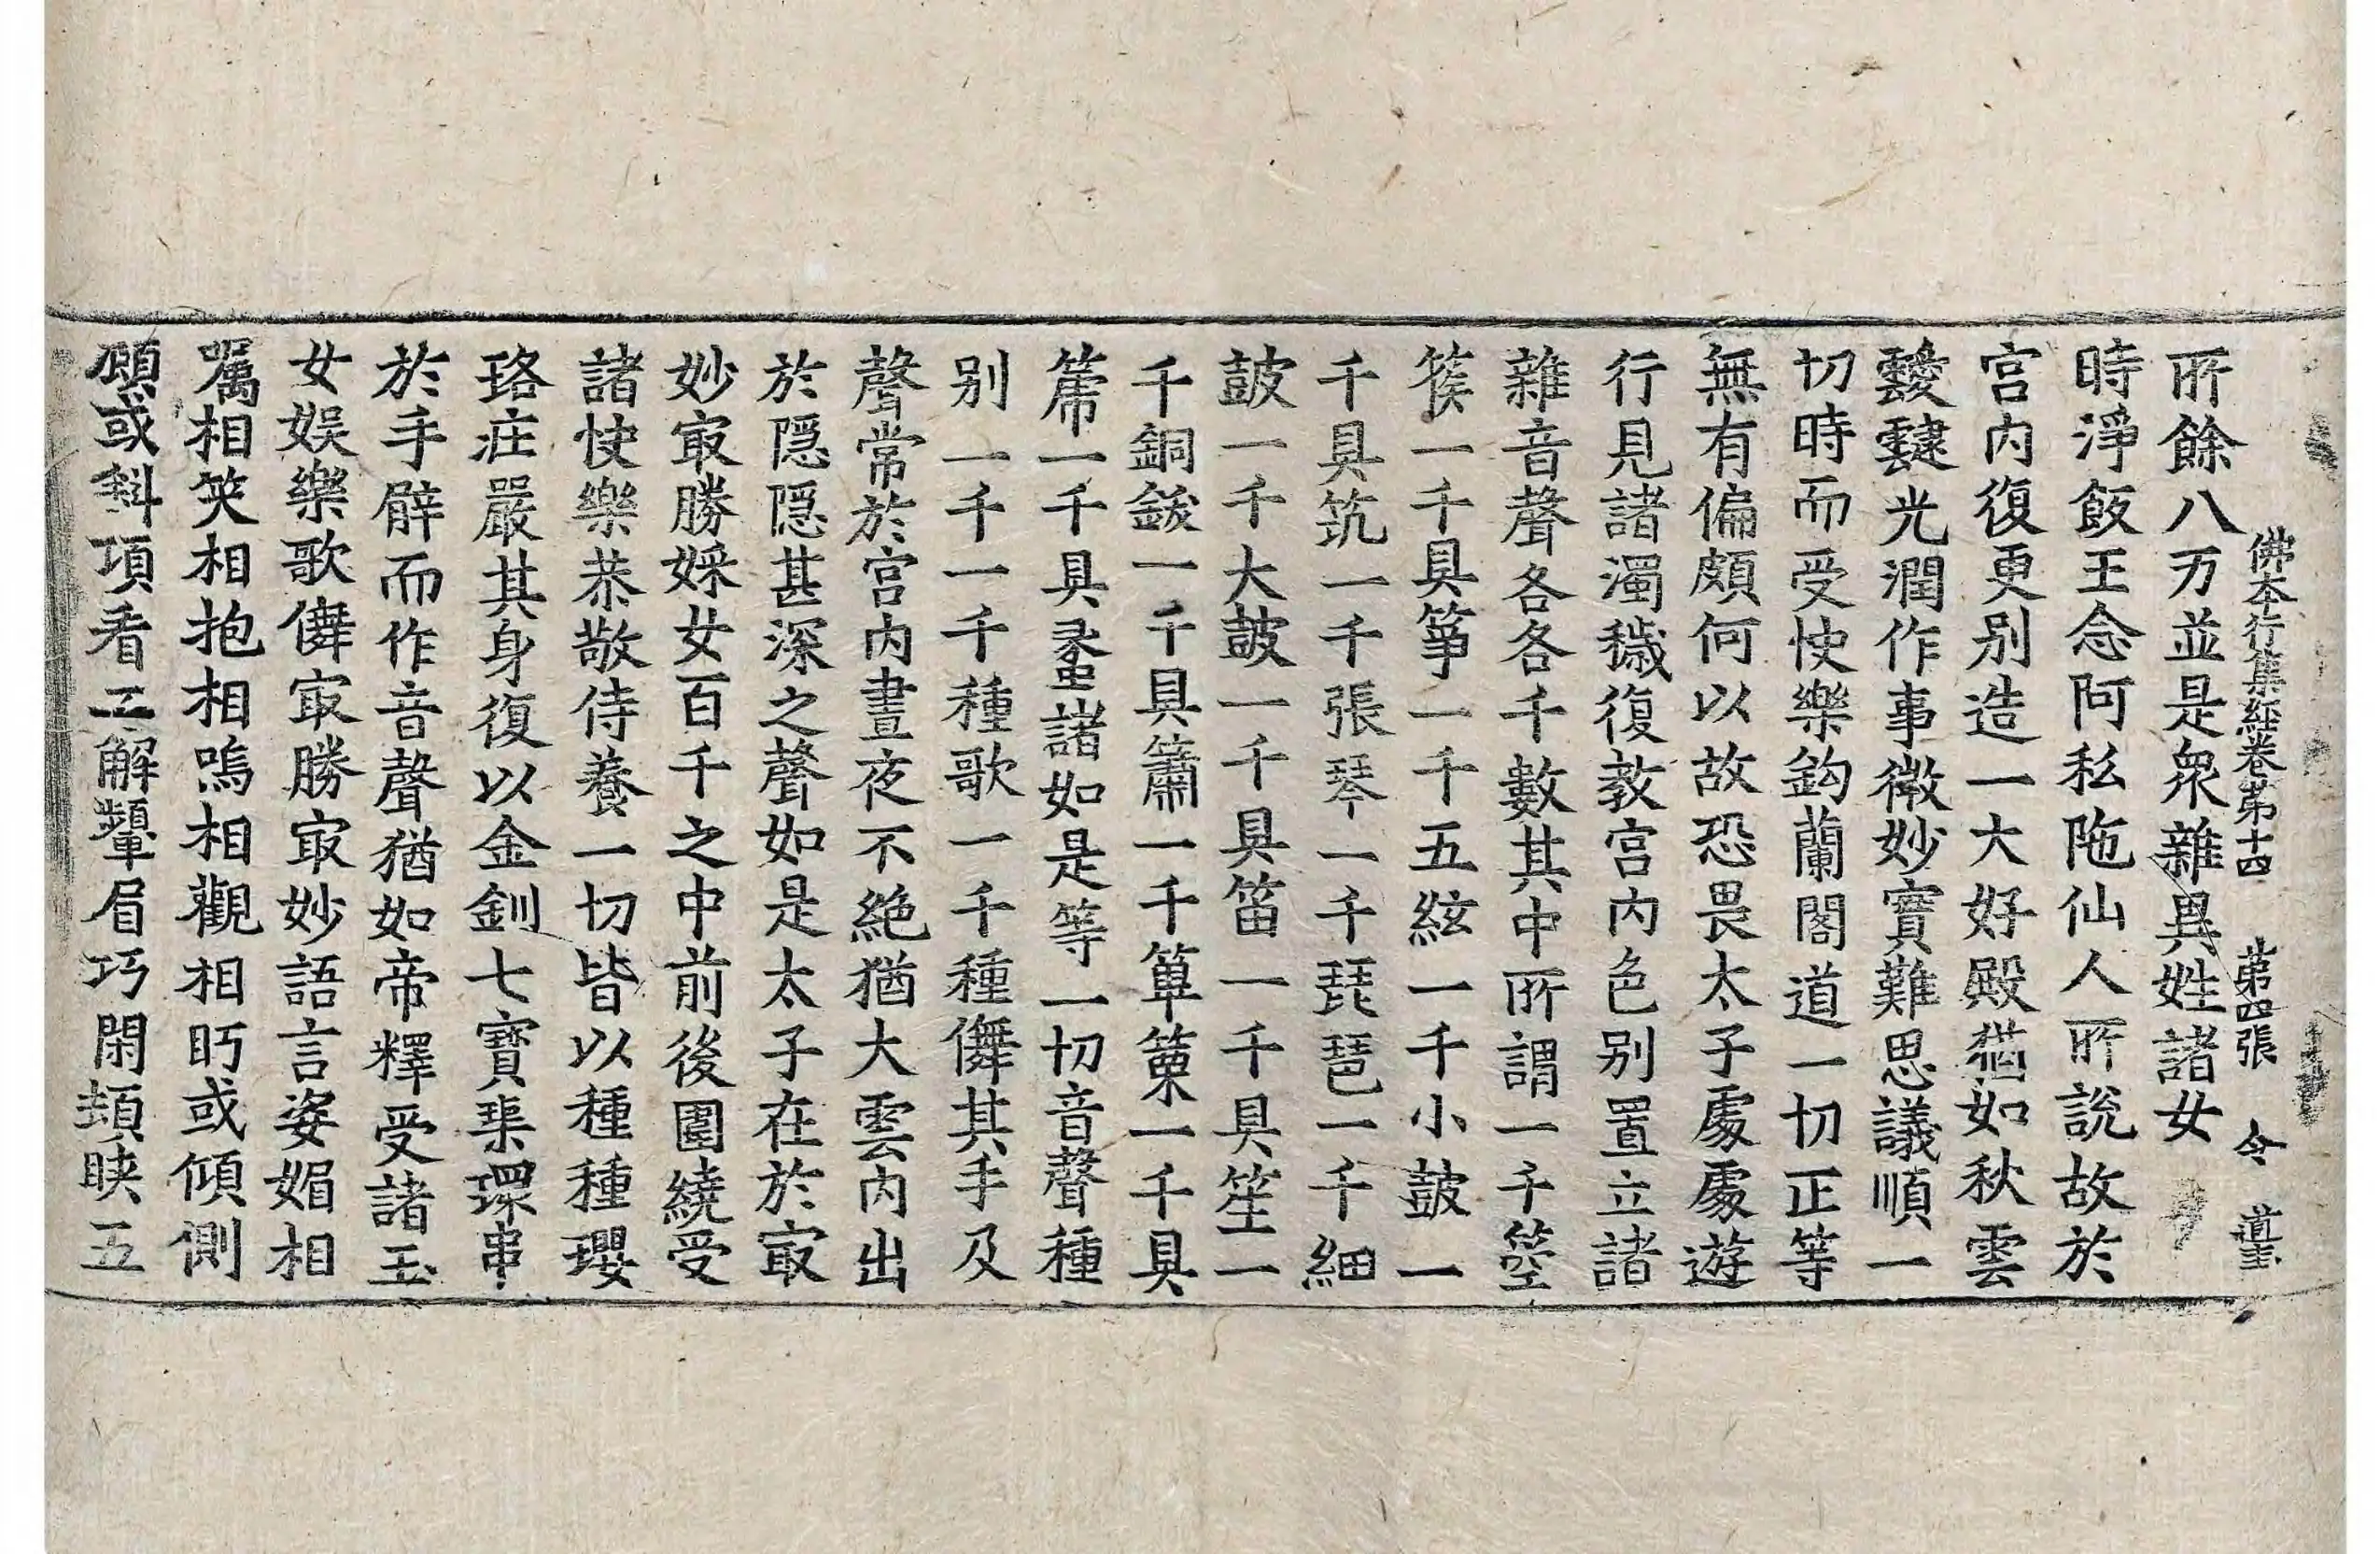 佛本行集經卷第十四 第四張 令 道玄
所餘八万並是衆雜異姓諸女
時淨飯王念阿私陁仙人所說故於
宮内復更别造一大好殿猶如秋雲
靉靆光潤作事微妙寶難思議順一
切時而受快樂鈎蘭閣道一切正等
無有偏頗何以故恐畏太子處處遊
行見諸濁穢復教宮内色别置立諸
雜音聲各各千數其中所謂一千箜
篌一千具箏一千五絃一千小皷一
千具筑一千張琴一千琵琶一千細
皷一千大皷一千具笛一千具笙一
千銅鈸一千具簫一千篳篥一千具
箎一千具蠡諸如是等一切音聲種
别一千一千種歌一千種儛其手及
聲常於宮内晝夜不絶猶大雲内出
於隱隱甚深之聲如是太子在於㝡
妙㝡勝婇女百千之中前後圍繞受
諸快樂恭敬侍養一切皆以種種瓔
珞莊嚴其身復以金釧七寶琹環串
於手臂而作音聲猶如帝釋受諸玉
女娱樂歌儛㝡勝㝡妙語言姿媚相
囑相笑相抱相嗚相觀相眄或傾側
頭或斜項看正解顰眉巧閑頡䀹五